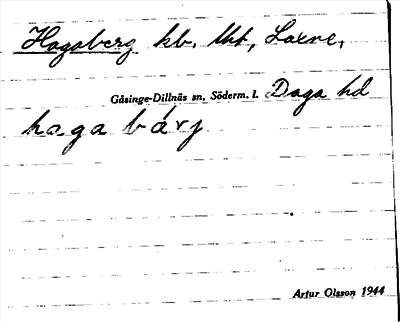 Hagaberg kb. lht, Laxne,
Gåsinge-Dillnäs sn, Söderm. l. Daga hd
haga bárj
Artur Olsson 1944